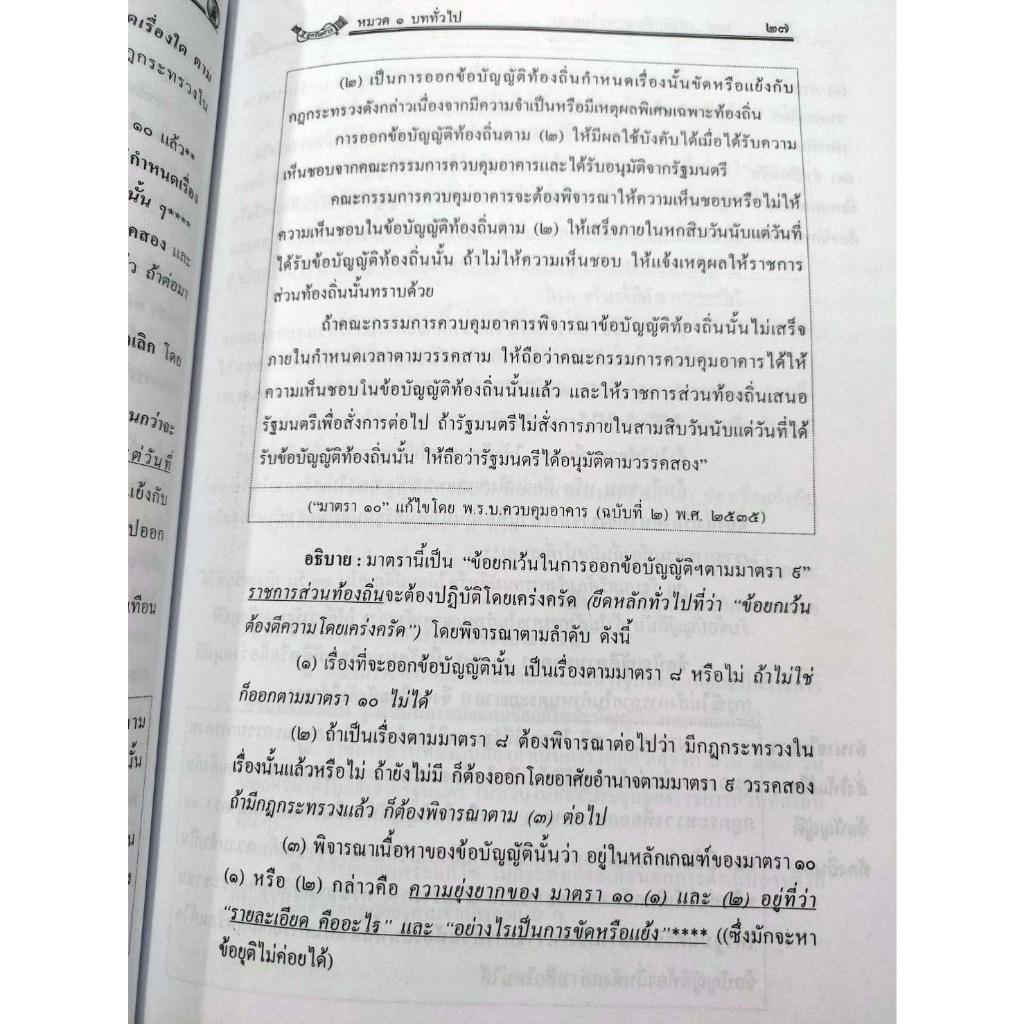 หมวด ๑ บททั่วไป
๒๗
(๒) เป็นการออกข้อบัญญัติท้องถิ่นกำหนดเรื่องนั้นขัดหรือแย้งกับ
กฎกระทรวงดังกล่าวเนื่องจากมีความจำเป็นหรือมีเหตุผลพิเศษเฉพาะท้องถิ่น
การออกข้อบัญญัติท้องถิ่นตาม (๒) ให้มีผลใช้บังคับได้เมื่อได้รับความ
เห็นชอบจากคณะกรรมการควบคุมอาคารและได้รับอนุมัติจากรัฐมนตรี
คณะกรรมการควบคุมอาคารจะต้องพิจารณาให้ความเห็นชอบหรือไม่ให้
ความเห็นชอบในข้อบัญญัติท้องถิ่นตาม (๒) ให้เสร็จภายในหกสิบวันนับแต่วันที่
ได้รับข้อบัญญัติท้องถิ่นนั้น ถ้าไม่ให้ความเห็นชอบ ให้แจ้งเหตุผลให้ราชการ
ส่วนท้องถิ่นนั้นทราบด้วย
ถ้าคณะกรรมการควบคุมอาคารพิจารณาข้อบัญญัติท้องถิ่นนั้นไม่เสร็จ
ภายในกำหนดเวลาตามวรรคสาม ให้ถือว่าคณะกรรมการควบคุมอาคารได้ให้
ความเห็นชอบในข้อบัญญัติท้องถิ่นนั้นแล้ว และให้ราชการส่วนท้องถิ่นเสนอ
รัฐมนตรีเพื่อสั่งการต่อไป ถ้ารัฐมนตรีไม่สั่งการภายในสามสิบวันนับแต่วันที่ได้
รับข้อบัญญัติท้องถิ่นนั้น ให้ถือว่ารัฐมนตรีได้อนุมัติตามวรรคสอง”
(“มาตรา ๑๐” แก้ไขโดย พ.ร.บ.ควบคุมอาคาร (ฉบับที่ ๒) พ.ศ. ๒๕๓๕)
อธิบาย : มาตรานี้เป็น “ข้อยกเว้นในการออกข้อบัญญัติฯตามมาตรา ๙”
ราชการส่วนท้องถิ่นจะต้องปฏิบัติโดยเคร่งครัด (ยึดหลักทั่วไปที่ว่า “ข้อยกเว้น
ต้องตีความโดยเคร่งครัด”) โดยพิจารณาตามลำดับ ดังนี้
(๑) เรื่องที่จะออกข้อบัญญัตินั้น เป็นเรื่องตามมาตรา ๘ หรือไม่ ถ้าไม่ใช่
ก็ออกตามมาตรา ๑๐ ไม่ได้
(๒) ถ้าเป็นเรื่องตามมาตรา ๘ ต้องพิจารณาต่อไปว่า มีกฎกระทรวงใน
เรื่องนั้นแล้วหรือไม่ ถ้ายังไม่มี ก็ต้องออกโดยอาศัยอำนาจตามมาตรา ๙ วรรคสอง
ถ้ามีกฎกระทรวงแล้ว ก็ต้องพิจารณาตาม (๓) ต่อไป
(๓) พิจารณาเนื้อหาของข้อบัญญัตินั้นว่า อยู่ในหลักเกณฑ์ของมาตรา ๑๐
(๑) หรือ (๒) กล่าวคือ ความยุ่งยากของ มาตรา ๑๐ (๑) และ (๒) อยู่ที่ว่า
“รายละเอียด คืออะไร” และ “อย่างไรเป็นการขัดหรือแย้ง”**** ((ซึ่งมักจะหา
ข้อยุติไม่ค่อยได้)